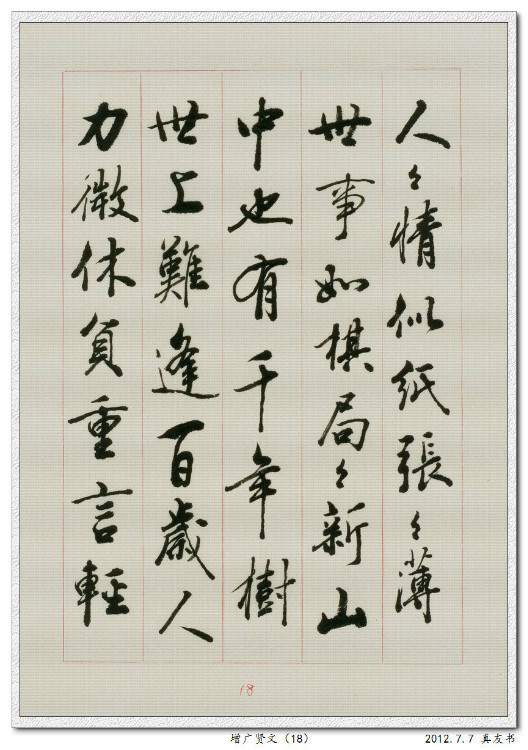 人々情似紙張々薄
世事如棋局々新山
中也有千年樹
世上難逢百歲人
力微休負重言輕
18
增广贤文（18）
2012.7.7 真友书